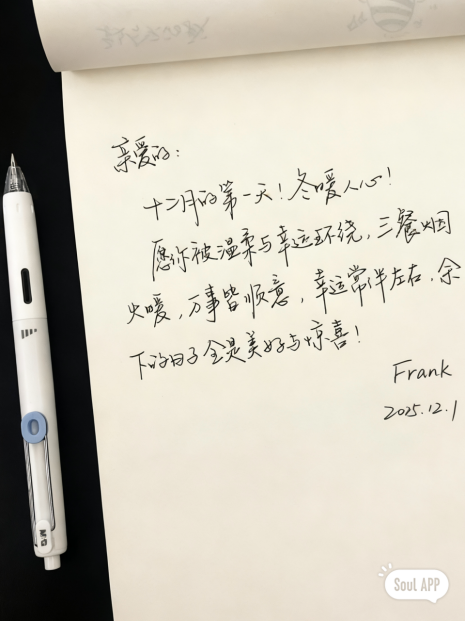 亲爱的:
十二月的第一天!冬暖人心!
愿你被温柔与幸运环绕,三餐烟
火暖,万事皆顺意,幸运常伴左右,余
下的日子全是美好与惊喜!
Frank
2025.12.1
M&G
Soul APP